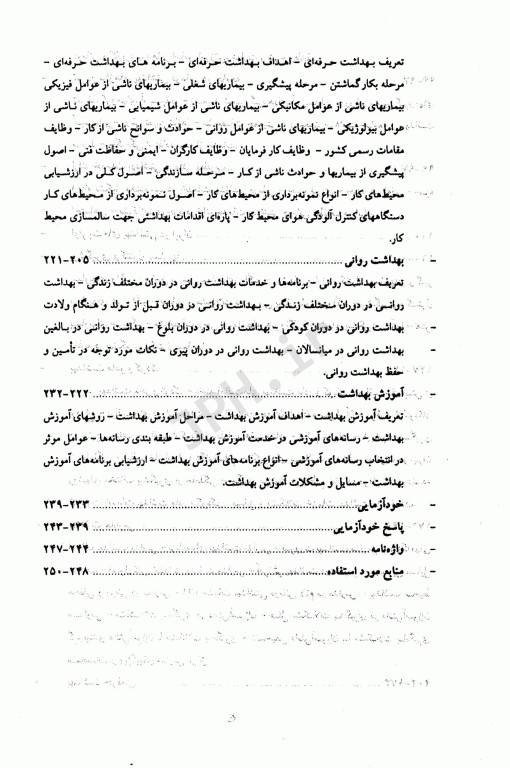 تعریف بهداشت حرفه‌ای – اهداف بهداشت حرفه‌ای – برنامه های بهداشت حرفه‌ای –
مرحله بکار گماشتن – مرحله پیشگیری – بیماریهای شغلی – بیماریهای ناشی از عوامل فیزیکی
بیماریهای ناشی از عوامل مکانیکی – بیماریهای ناشی از عوامل شیمیایی – بیماریهای ناشی از
عوامل بیولوژیکی – بیماریهای ناشی از عوامل روانی – حوادث و سوانح ناشی از کار – وظایف
مقامات رسمی کشور – وظایف کار فرمایان – وظایف کارگران – ایمنی و حفاظت فنی – اصول
پیشگیری از بیماریها و حوادث ناشی از کار – مرحله سازندگی – اصول کلی در ارزشیابی
محیط‌های کار – انواع نمونه‌برداری از محیط‌های کار – اصول نمونه‌برداری از محیط‌های کار
دستگاههای کنترل آلودگی هوای محیط کار – پاره‌ای اقدامات بهداشتی جهت سالمسازی محیط
کار.
- بهداشت روانی ........ ۲۰۵-۲۲۱
تعریف بهداشت روانی – برنامه‌ها و خدمات بهداشت روانی در دوران مختلف زندگی – بهداشت
روانی در دوران مختلف زندگی – بهداشت روانی در دوران قبل از تولد و هنگام ولادت
- بهداشت روانی در دوران کودکی – بهداشت روانی در دوران بلوغ – بهداشت روانی در بالغین
- بهداشت روانی در میانسالان – بهداشت روانی در دوران پیری – نکات مورد توجه در تأمین و
حفظ بهداشت روانی.
- آموزش بهداشت ........ ۲۲۲-۲۳۲
تعریف آموزش بهداشت – اهداف آموزش بهداشت – مراحل آموزش بهداشت – روشهای آموزش
بهداشت – رسانه‌های آموزشی در خدمت آموزش بهداشت – طبقه بندی رسانه‌ها – عوامل موثر
در انتخاب رسانه‌های آموزشی – انواع برنامه‌های آموزش بهداشت – ارزشیابی برنامه‌های آموزش
بهداشت – مسایل و مشکلات آموزش بهداشت.
- خودآزمایی ........ ۲۳۳-۲۳۹
- پاسخ خودآزمایی ........ ۲۳۹-۲۴۳
- واژه‌نامه ........ ۲۴۴-۲۴۷
- منابع مورد استفاده ........ ۲۴۸-۲۵۰
JPH.ir